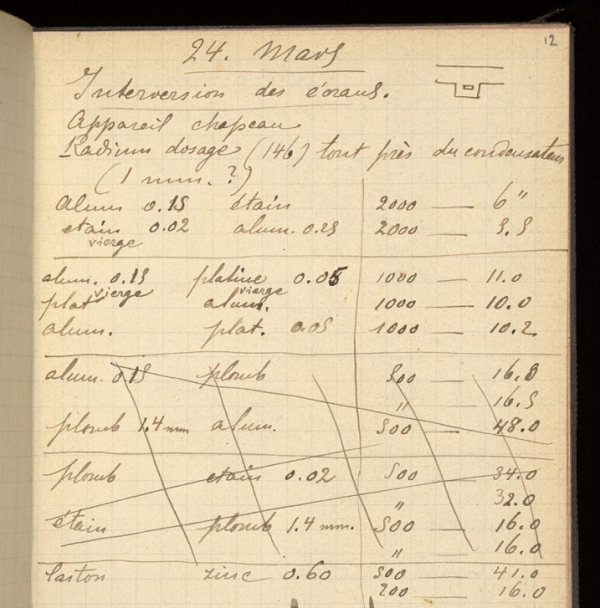 12
24. Mars
Interversion des écrans.
Appareil chapeau
Radium dosage (146) tout près du condensateur
(1 mm. ?)
Alum 0.15 étain 2000 — 6"
etain 0.02 alum. 0.25 2000 — 5.5
vierge
alum. 0.15 platine 0.05 1000 — 11.0
plat vierge alum. vierge 1000 — 10.0
alum. plat. 0.05 1000 — 10.2
alum. 0.15 plomb 500 — 16.8
" — 16.5
plomb 1.4 mm alum. 500 — 48.0
plomb etain 0.02 500 — 34.0
" 32.0
étain plomb 1.4 mm. 500 — 16.0
" — 16.0
laiton zinc 0.60 500 — 41.0
200 — 16.0